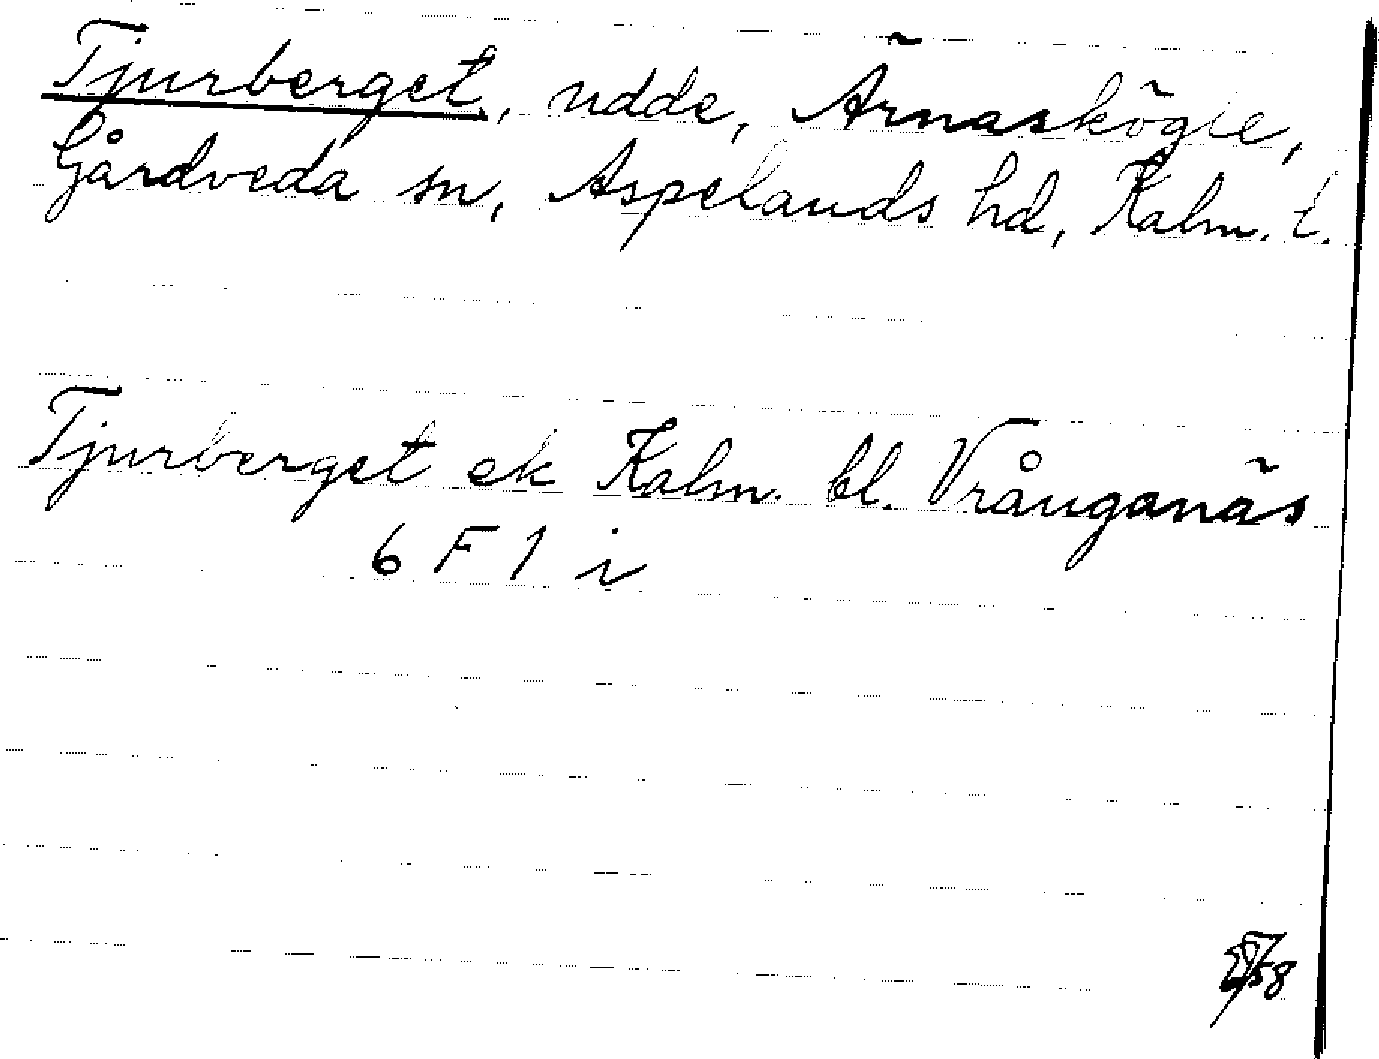 Tjurberget, udde, Ärnaskögle,
Gårdveda sn, Aspelands hd, Kalm. l.
Tjurberget ek Kalm. bl. Vrånganäs
6 F 1 i